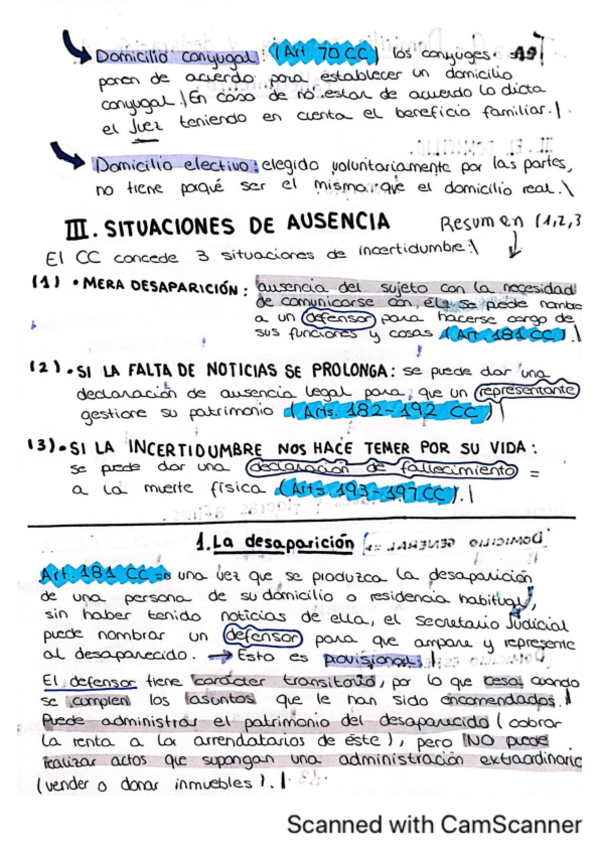 Domicilio conyugal: (Art. 70 CC) los cónyuges se
ponen de acuerdo para establecer un domicilio
conyugal. En caso de no estar de acuerdo lo dicta
el Juez teniendo en cuenta el beneficio familiar.
Domicilio electivo: elegido voluntariamente por las partes,
no tiene porqué ser el mismo que el domicilio real.
III. SITUACIONES DE AUSENCIA Resumen (1,2,3
El CC concede 3 situaciones de incertidumbre:
(1) • MERA DESAPARICIÓN: ausencia del sujeto con la necesidad
de comunicarse con él, se puede nombra
a un defensor para hacerse cargo de
sus funciones y cosas (Art. 181 CC).
(2) • SI LA FALTA DE NOTICIAS SE PROLONGA: se puede dar una
declaración de ausencia legal para que un representante
gestione su patrimonio (Arts. 182-192 CC)
(3) • SI LA INCERTIDUMBRE NOS HACE TEMER POR SU VIDA:
se puede dar una declaración de fallecimiento =
a la muerte física (Arts 193-197 CC).
1. La desaparición
Art. 181 CC => una vez que se produzca la desaparición
de una persona de su domicilio o residencia habitual,
sin haber tenido noticias de ella, el secretario Judicial
puede nombrar un defensor para que ampare y represente
al desaparecido. → Esto es provisional.
El defensor tiene carácter transitorio, por lo que cesa cuando
se cumplen los asuntos que le han sido encomendados.
Puede administrar el patrimonio del desaparecido (cobrar
la renta a los arrendatarios de éste), pero NO puede
realizar actos que supongan una administración extraordinaria
(vender o donar inmuebles).
Scanned with CamScanner